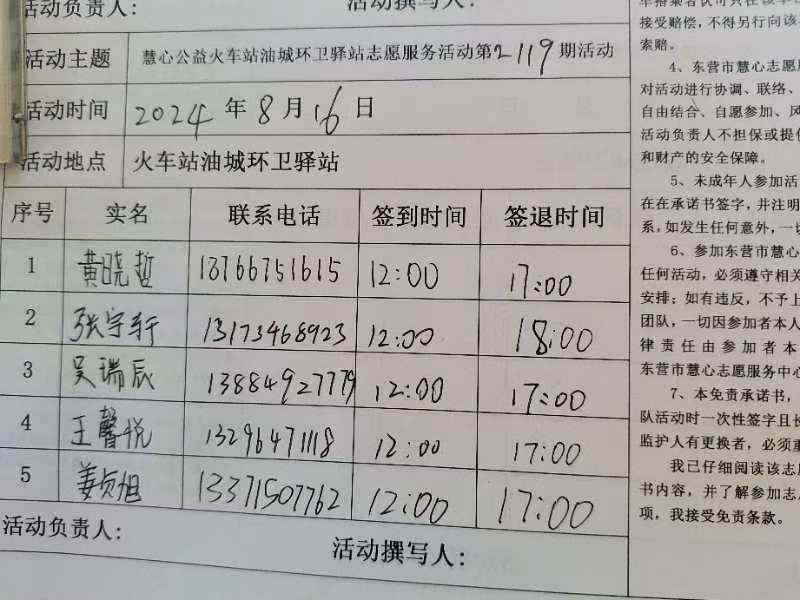 活动负责人:
活动撰写人:
活动主题 慧心公益火车站油城环卫驿站志愿服务活动第2119期活动
活动时间 2024年8月16日
活动地点 火车站油城环卫驿站
序号 实名 联系电话 签到时间 签退时间
1 黄晓哲 18766751615 12:00 17:00
2 张宇轩 13173468923 12:00 18:00
3 吴瑞辰 13884927779 12:00 17:00
4 王馨悦 13296471118 12:00 17:00
5 姜贞旭 13371507762 12:00 17:00
活动负责人:
活动撰写人:
接受赔偿，不得另行向该
索赔。
4、东营市慧心志愿
对活动进行协调、联络、
自由结合、自愿参加、风
活动负责人不担保或提供
和财产的安全保障。
5、未成年人参加活
在在承诺书签字，并注明
系。如发生任何意外，一切
6、参加东营市慧心
任何活动，必须遵守相关
安排；如有违反，不予上
团队，一切因参加者本人
律责任由参加者本
东营市慧心志愿服务中心
7、本免责承诺书，
队活动时一次性签字且长
监护人有更换者，必须重
我已仔细阅读该志愿
书内容，并了解参加志愿
项，我接受免责条款。